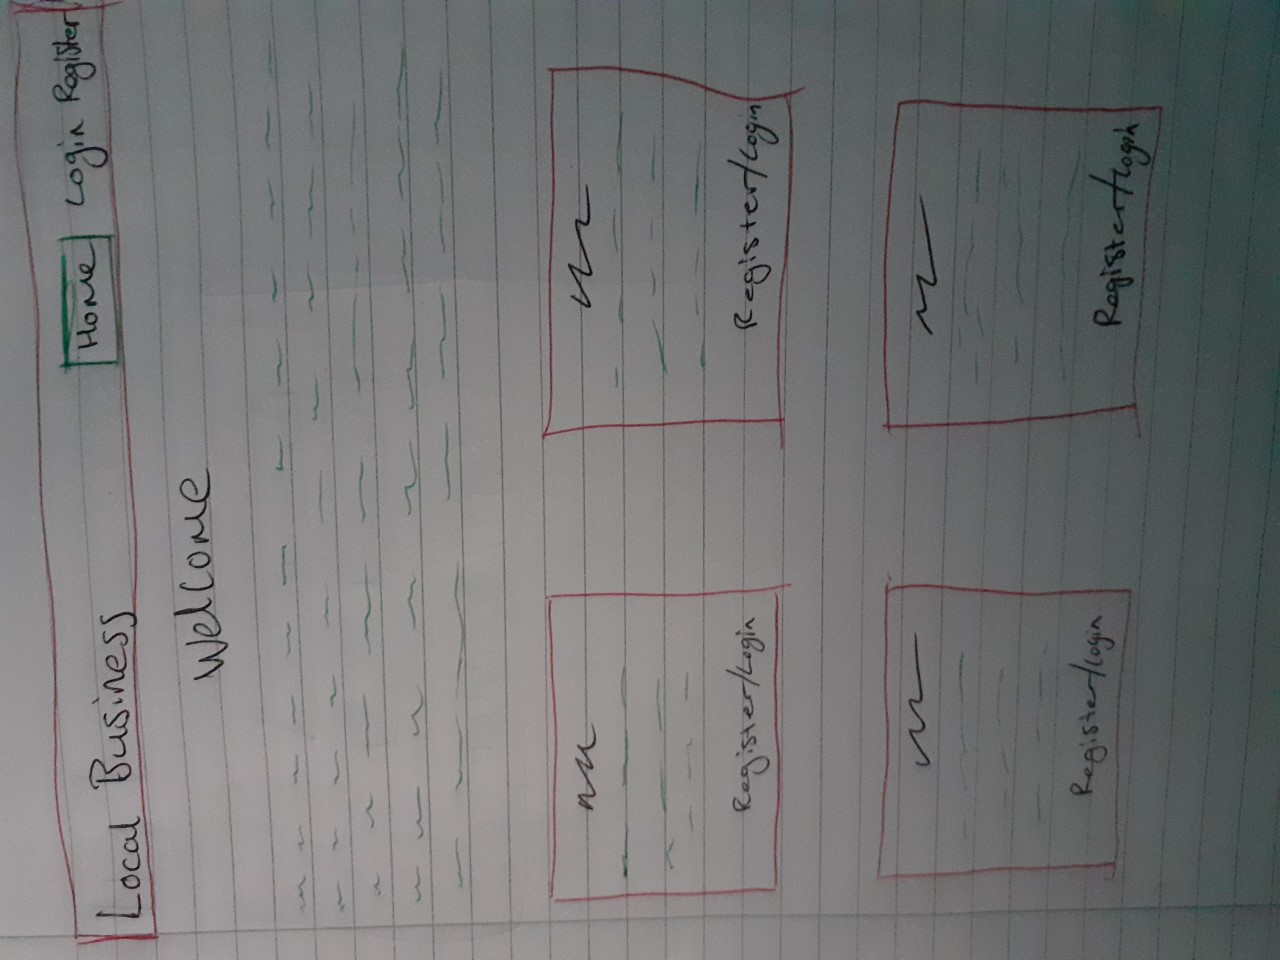 Local Business Home Login Register
Welcome
Register/Login Register/Login
Register/Login Register/Login